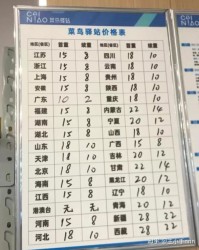 CAI
NIAO 菜鸟驿站
菜鸟驿站价格表
地区(省份) 首重 续重 地区(省份) 首重 续重
江苏 15 8 四川 18 10
浙江 15 8 云南 18 10
上海 15 8 贵州 18 10
安徽 15 8 陕西 18 10
广东 10 2 重庆 18 10
福建 15 8 内蒙古 22 14
湖南 15 8 宁夏 20 12
湖北 15 8 山西 18 10
山东 18 10 广西 15 8
天津 18 10 吉林 20 12
北京 18 10 甘肃 22 14
海南 15 8 黑龙江 20 12
江西 15 8 辽宁 18 10
港澳台 无 无 青海 20 12
河南 15 8 新疆 28 22
河北 18 10 西藏 28 22